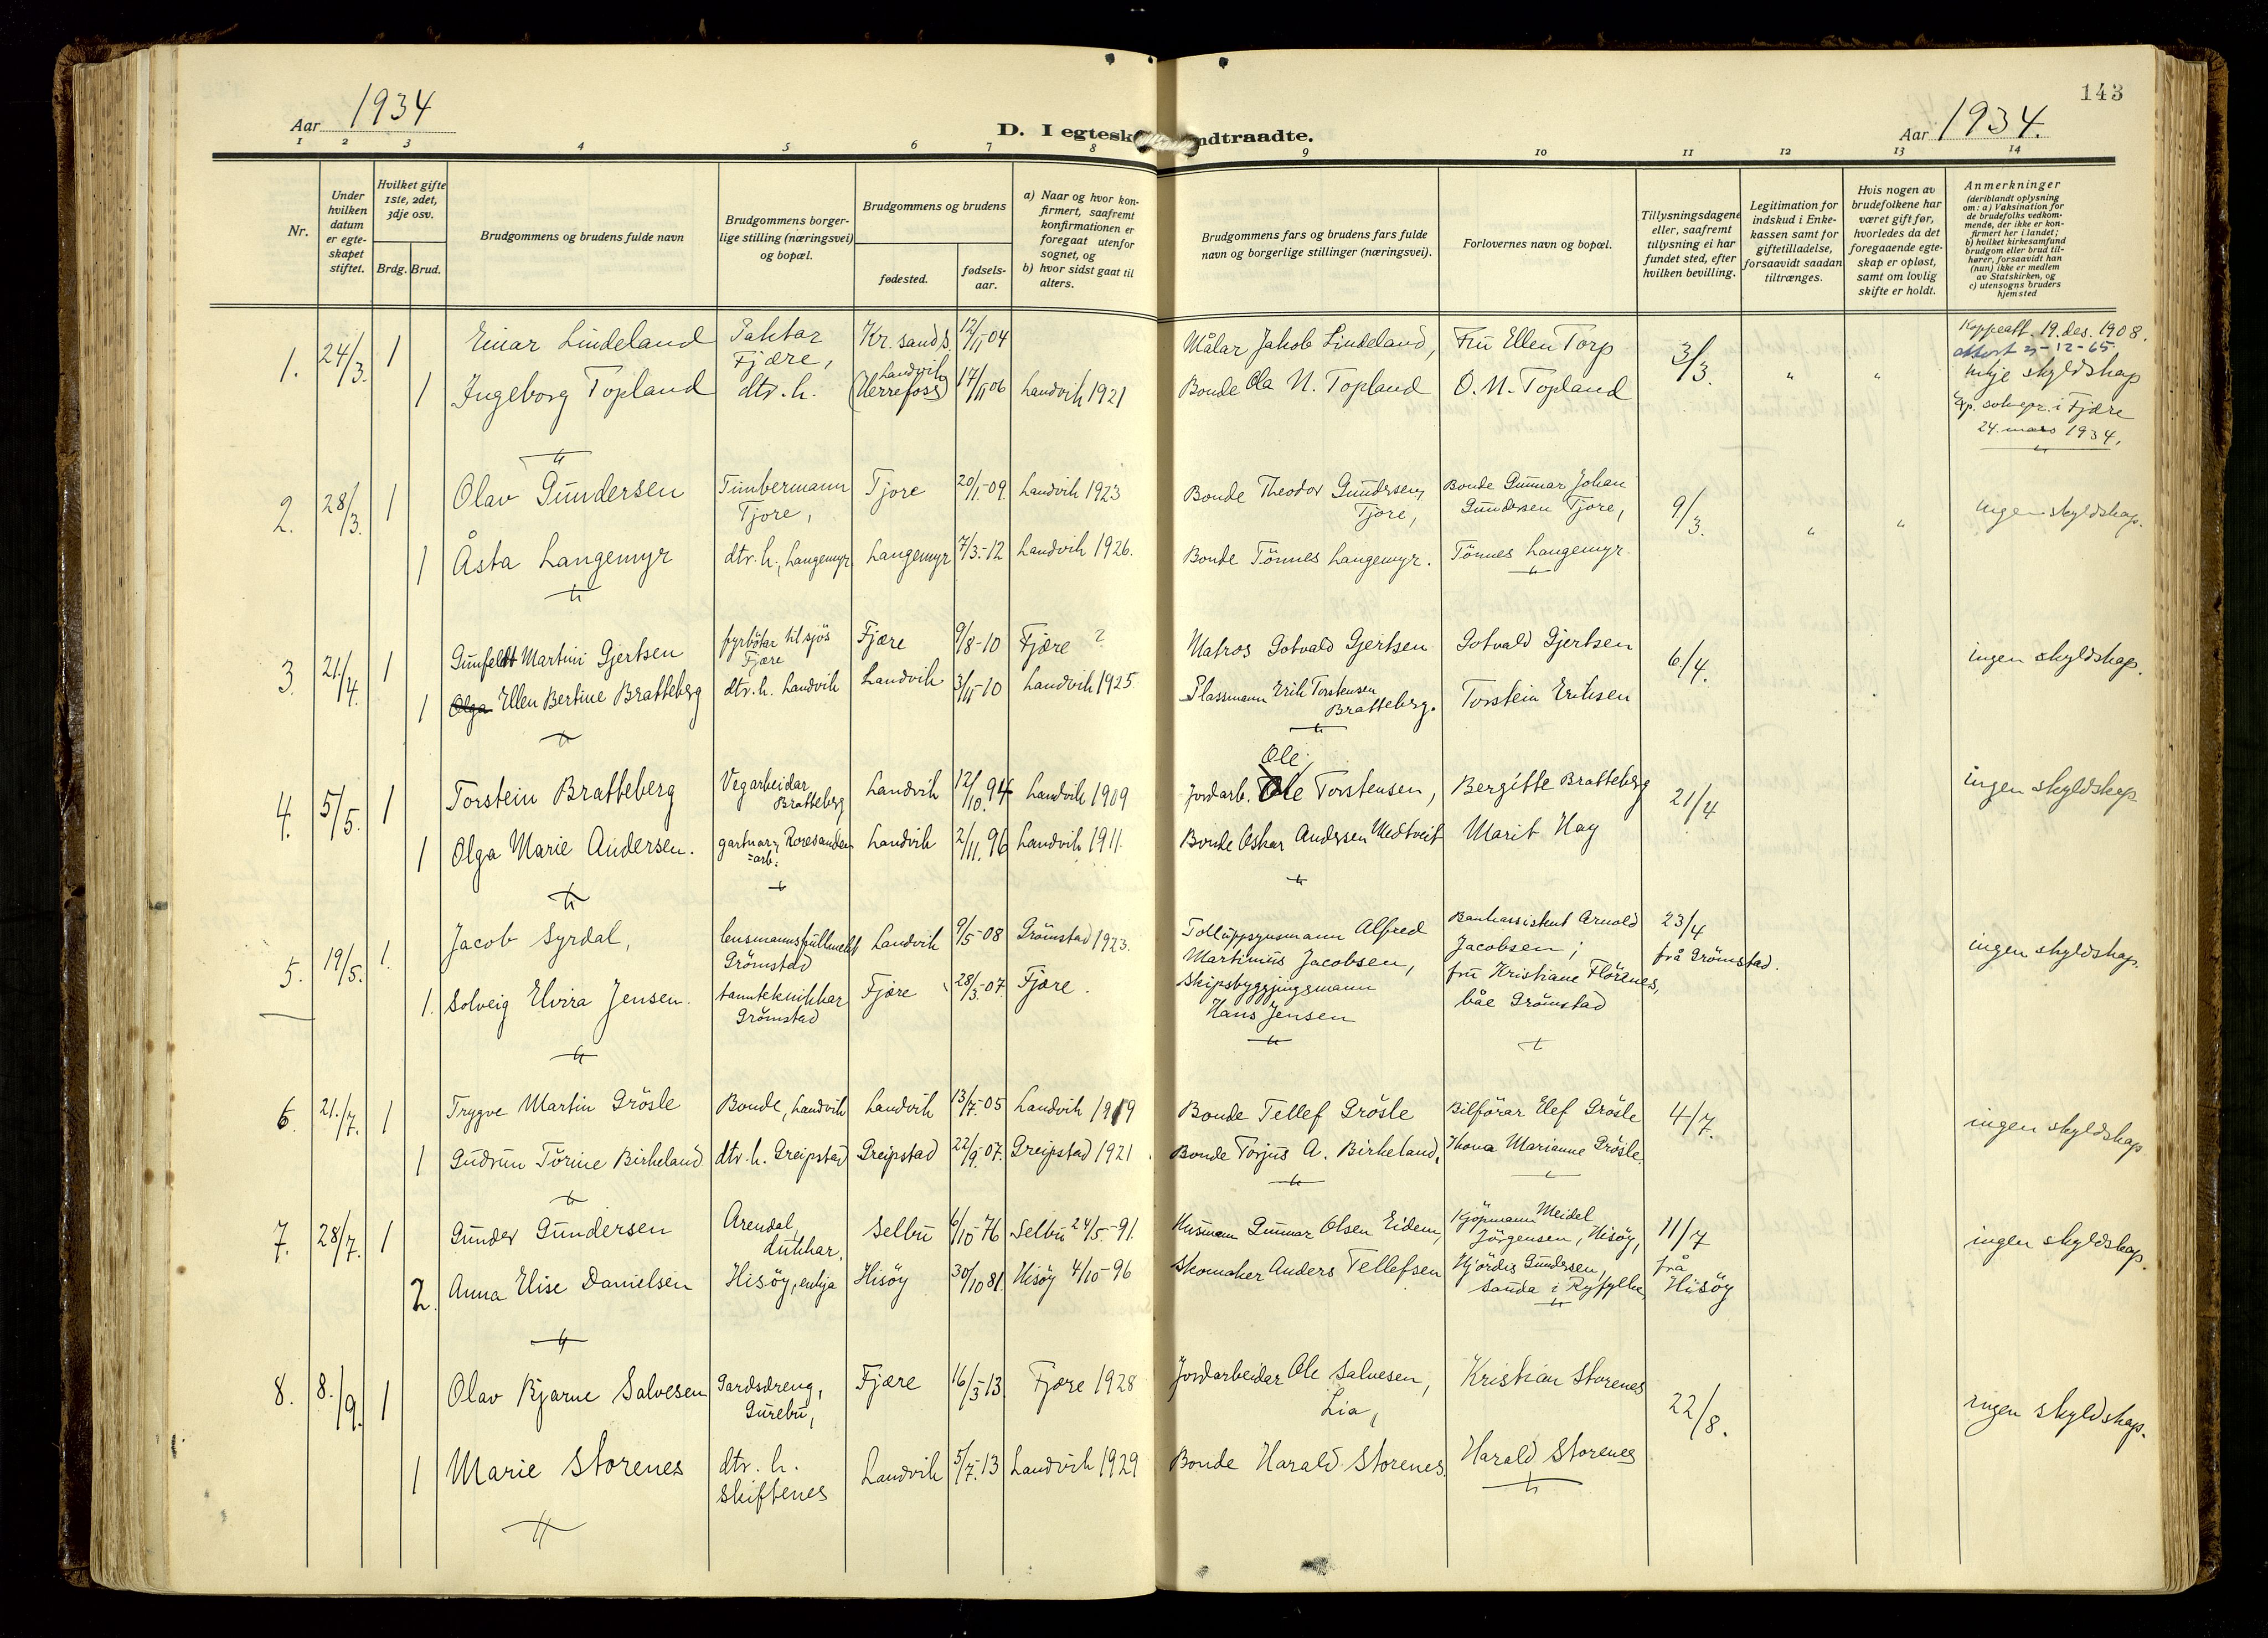 Aar 1934
D. I egtesk
ndtraadte.
Aar 1934.
143
1 2 3 4 5 6 7 8 9 10 11 12 13 14
Nr.
Under hvilken datum er egteskapet stiftet.
Hvilket gifte 1ste, 2det, 3dje osv.
Brdg. Brud.
Brudgommens og brudens fulde navn
Brudgommens borgerlige stilling (næringsvei) og bopæl.
Brudgommens og brudens
fødested.
fødselsaar.
a) Naar og hvor konfirmert, saafremt konfirmationen er foregaat utenfor sognet, og
b) hvor sidst gaat til alters.
Brudgommens fars og brudens fars fulde navn og borgerlige stillinger (næringsvei).
Forlovernes navn og bopæl.
Tillysningsdagene eller, saafremt tillysning ei har fundet sted, efter hvilken bevilling.
Legitimation for indskud i Enkekassen samt for giftetilladelse, forsaavidt saadan tiltrænges.
Hvis nogen av brudefolkene har været gift før, hvorledes da det foregaaende egteskap er opløst, samt om lovlig skifte er holdt.
Anmerkninger (deriblandt oplysning om: a) Vaksination for de brudefolks vedkommende, der ikke er konfirmert her i landet; b) hvilket kirkesamfund brudgom eller brud tilhører, forsaavidt han (hun) ikke er medlem av Statskirken, og c) utensogns bruders hjemsted
1. 24/3. 1 Einar Lindeland Paktar Fjære, Kr.sand s. 12/11-04 Målar Jakob Lindeland, Fru Ellen Torp 3/3. " " Koppeatt. 19. des. 1908.
attest 3-12-65.
1 Ingeborg Topland dtr. h. Landvik (Herrefoss) 17/11 06 Landvik 1921 Bonde Ola N. Topland O. N. Topland ikkje skyldskap
sokepr. i Fjære
24. mars 1934.
2. 28/3. 1 Olav Gundersen Timbermann Tjore, Tjore 20/1-09. Landvik 1923 Bonde Theodor Gundersen, Tjore, Bonde Gunnar Johan Gundersen Tjore, 9/3. " " ingen skyldskap.
1 Åsta Langemyr dtr. h., Langemyr Langemyr 7/3-12 Landvik 1926. Bonde Tönnes Langemyr. Tönnes Langemyr.
3. 21./4. 1 Gunfeldt Martini Gjertsen fyrbötar til sjös Fjære Fjære 9/8-10 Fjære ? Matros Gotvald Gjertsen Gotvald Gjertsen 6/4. ingen skyldskap.
1 Olga Ellen Bertine Bratteberg dtr. h. Landvik Landvik 3/11-10 Landvik 1925 Plassmann Erik Torstensen Bratteberg. Torstein Eriksen
4. 5/5. 1 Torstein Bratteberg Vegarbeidar Bratteberg Landvik 12/10. 94 Landvik 1909 Jordarb. Ole Ole Torstensen, Bergitte Bratteberg 21/4 ingen skyldskap
1 Olga Marie Andersen. gartnar- =arb. Roresanden Landvik 2/11. 96 Landvik 1911. Bonde Oskar Andersen Medtveit Marit Hay
5. 19/5. 1. Jacob Syrdal, lensmannsfullmekt Grömstad Landvik 9/5-08 Grömstad 1923. Tolluppsynsmann Alfred Martinius Jacobsen, Bankassistent Arnold Jacobsen; 23/4 frå Grömstad. ingen skyldskap.
1. Solveig Elvira Jensen. tannteknikkar Grömstad Fjære 28/3-07. Fjære. Skipsbyggjingsmann Hans Jensen fru Kristiane Flörenes, båe Grömstad
6. 21./7. 1 Trygve Martin Grösle Bonde, Landvik Landvik 13/7-05 Landvik 1919 Bonde Tellef Grösle Bilförar Elef Grösle 4/7. ingen skyldskap
1 Gudrun Törine Birkeland dtr. h. Greipstad Greipstad 22/9-07. Greipstad 1921. Bonde Torjus A. Birkeland, Kona Marianne Grösle.
7. 28/7. 1 Gunder Gundersen Arendal, dukkar, Selbu 6/10 76 Selbu 24/5-91. Husmann Gunnar Olsen Eidem, Kjöpmann Meidel Jörgensen, Hisöy, 11/7 frå Hisöy ingen skyldskap.
2. Anna Elise Danielsen Hisöy, enkja Hisöy 30/10 81. Hisöy 4/10-96 Skomaker Anders Tellefsen Hjördis Gundersen, Sauda i Ryfylke,
8. 8./9. 1 Olav Bjarne Salvesen Gardsdreng, Gurebu, Fjære 16/3-13. Fjære 1928 Jordarbeidar Ole Salvesen, Lia, Kristian Storenes 22/8. ingen skyldskap.
1 Marie Storenes dtr. h. Skiftenes Landvik 5/7-13 Landvik 1929 Bonde Harald Storenes. Harald Storenes